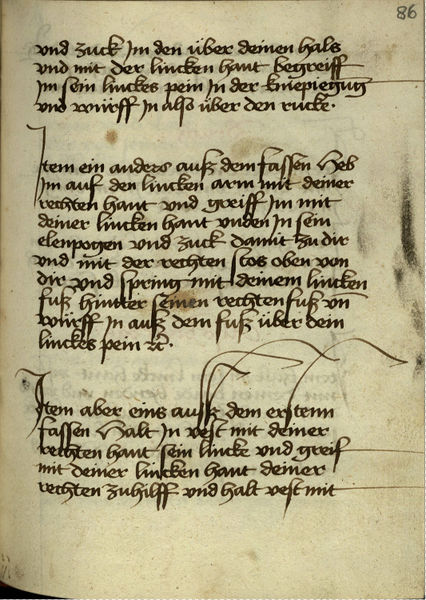 86
vnd zuck Im den über deinen hals
vnd mit der lincken hant begreiff
Im sein linckes pein In der kniepiegug
vnd würff In also über den rücke·
Item ein anders auß dem fassen Heb
Im auf den lincken arm mit deiner
rechten hant vnd greiff Im mit
deiner lincken hant vnden In sein
elenpogen vnd zuck damit zu dir
vnd mit der rechten stos oben von
dir vnd spring mit deinem lincken
fuß hinter seinen rechten fuß vn̄
würff In auß dem fuß über dein
linckes pein ꝛc·
Item aber eins auß dem erstenn
fassen Halt In vest mit deiner
rechten hant sein lincke vnd greif
mit deiner lincken hant deiner
rechten zuhilff vnd halt vest mit